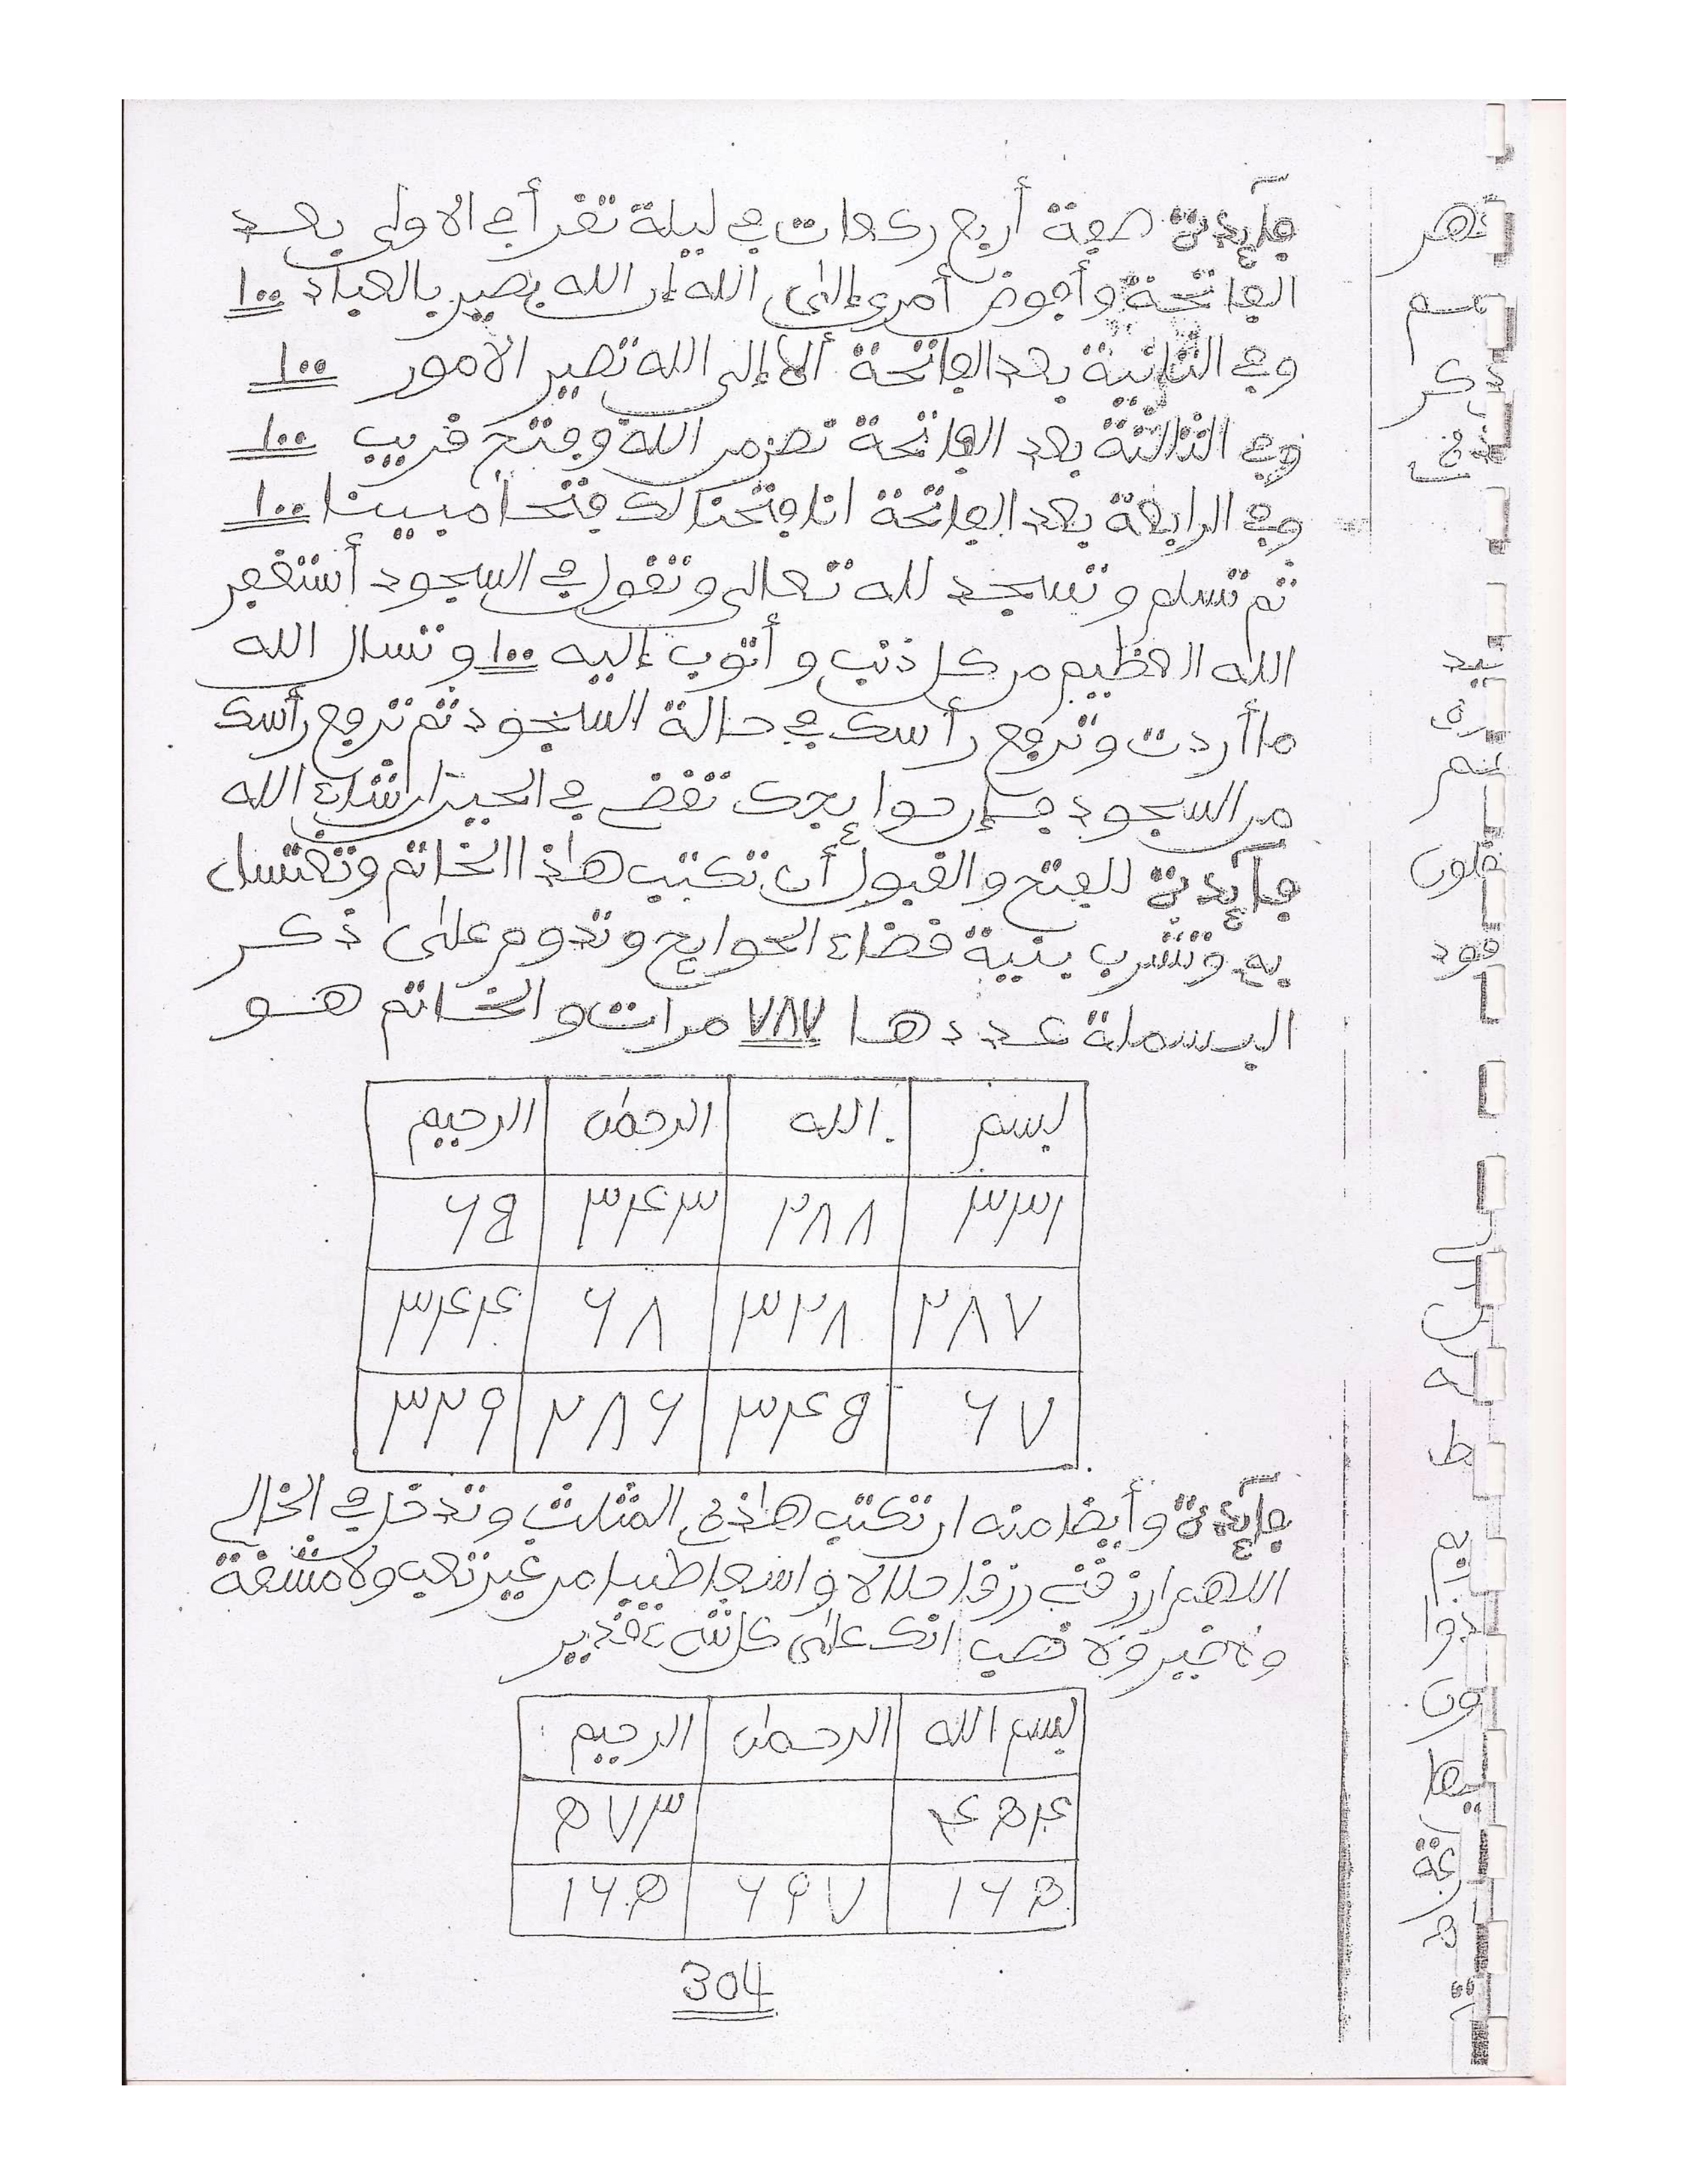 فآيدة صفة أربع ركعات في ليلة تقرأ في الاولى بعد
الفاتحة وأفوض أمري إلى الله إن الله بصير بالعباد ١٠٠
وفي الثانية بعد الفاتحة ألا إلى الله تصير الامور ١٠٠
وفي الثالثة بعد الفاتحة نصر من الله وفتح قريب ١٠٠
وفي الرابعة بعد الفاتحة انا فتحنا لك فتحا مبينا ١٠٠
ثم تسلم وتسجد لله تعالى وتقول في السجود أستغفر
الله العظيم من كل ذنب وأتوب إليه ١٠٠ وتسال الله
ما أردت وترفع رأسك في حالة السجود ثم ترفع رأسك
من السجود فإن حوايجك تقضى في الحين إن شاء الله
فآيدة للفتح والقبول أن تكتب هاذا الخاتم وتغتسل
به وتشرب بنية قضاء الحوايج وتدوم على ذكر
البسملة عددها ٧٨٧ مرات والخاتم هو
بسم الله الرحمٰن الرحيم
٣٣١ ٢٨٨ ٣٤٣ ٦٥
٢٨٧ ٣٢٨ ٦٨ ٣٤٤
٦٧ ٣٤٥ ٢٨٦ ٣٢٩
فآيدة وأيضا منه ان تكتب هاذه المثلث وتدخل في الخالي
اللهم ارزقني رزقا حلالا واسعا طيبا من غير تعب ولا مشقة
ولا ضير ولا نصب انك على كل شيء قدير
بسم الله الرحمٰن الرحيم
٤٥٤ ٥٧٣
١٦٥ ٦٩٧ ١٦٥
304